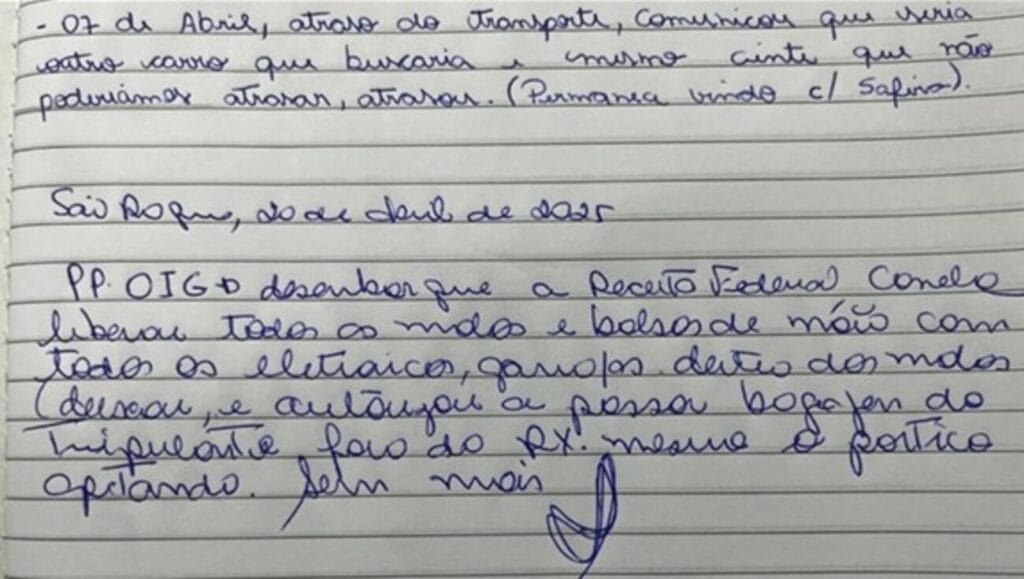 - 07 de Abril, atraso do transporte, comunicou que seria
outro carro que buscaria e mesmo ciente que não
poderíamos atrasar, atrasou. (Permaneça vindo c/ Safira).
São Roque, 20 de abril de 2025
PP. OIGD desembarque a Receita Federal
liberou todos as malas e bolsas de mão com
todos os eletraicos, garrafas dentro das malas
(deixou, e autorizou a passar bagagem do
tripulante fora do RX. mesmo o pórtico
apitando. Sem mais